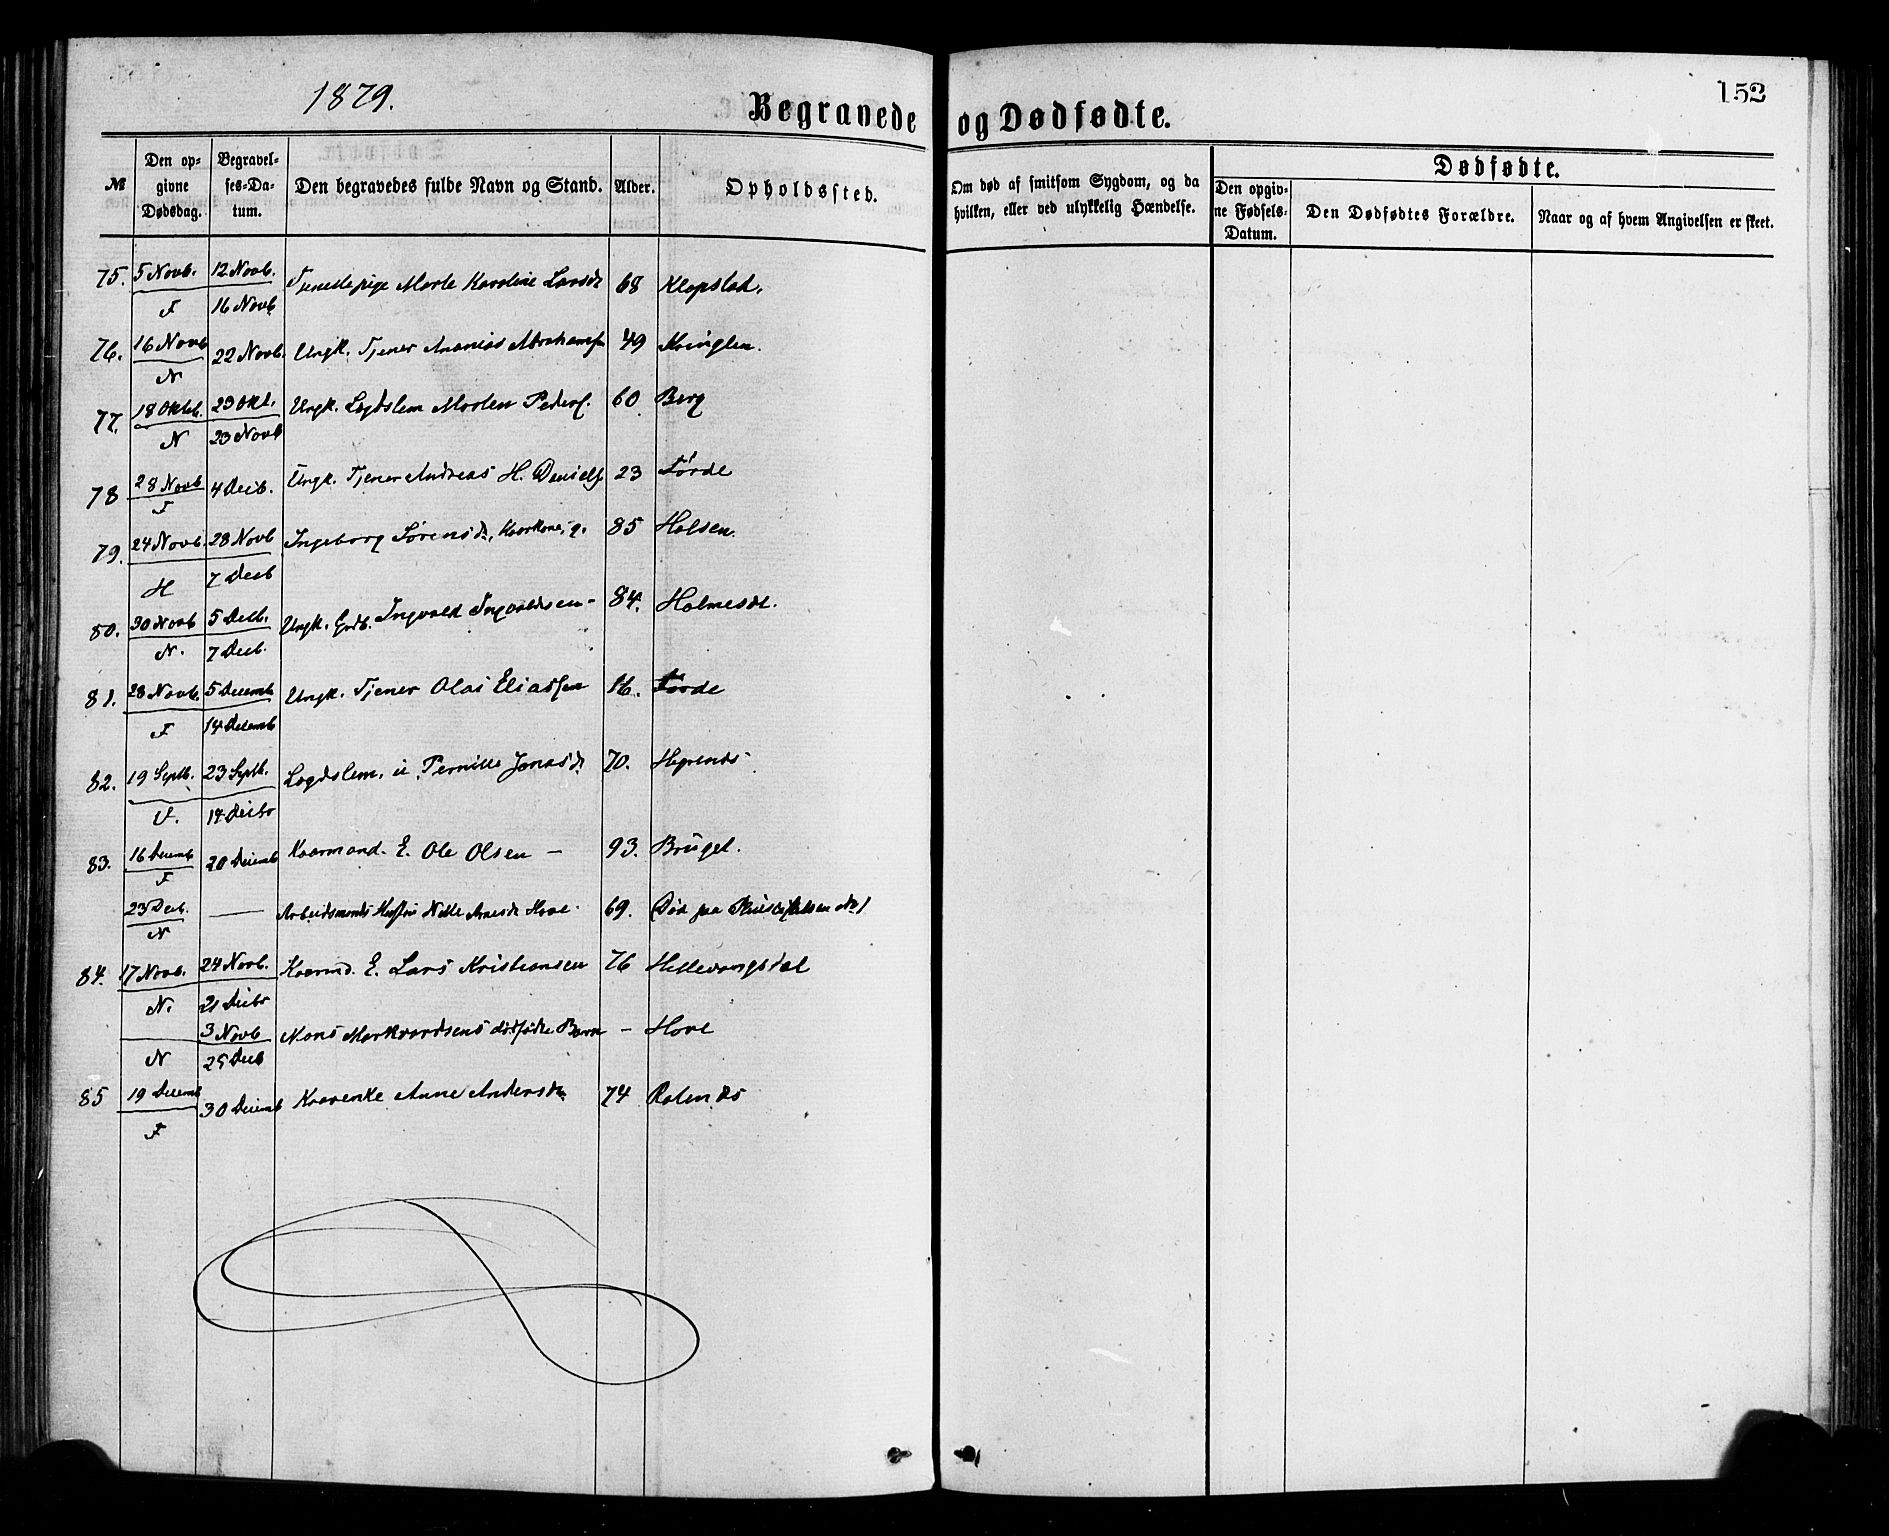 1879.
152
Begravede og Dødfødte.
№ Den opgivne Dødsdag. Begravelses-Datum. Den begravedes fulde Navn og Stand. Alder. Opholdssted. Om død af smitsom Sygdom, og da hvilken, eller ved ulykkelig Hændelse. Dødfødte. Den opgivne Fødsels-Datum. Den Dødfødtes Forældre. Naar og af hvem Angivelsen er skeet.
75. 5 Novb. 12 Novb. Tjenestepige Marte Karoline Larsdr 68 Klopstad.
F 16 Novb
76. 16 Novb 22 Novb. Ungk. Tjener Ananias Abrahamsen 49 Kvinglen.
N
77. 18 Oktb. 23 Okt. Ungk. Lægdslem Morten Peders. 60 Berg
N 23 Novb
78 28 Novb 4 Decb. Ungk. Tjener Andreas H. Daniels. 23 Førde
F
79. 24 Novb. 28 Novb Ingeborg Sørensdr, Kaarkone, g. 85 Holsen.
H 7 Decb
80. 30 Novb 5 Decb. Ungk. Grdb. Ingvald Ingvaldsen - 84. Holmesdt.
N. 7 Decb.
81. 28 Novb. 5 Decemb Ungk. Tjener Olai Eliassen 16. Førde
F 14 Decemb
82. 19 Septb. 23 Septb. Lægdslem, u. Pernille Jonasdr 70.
14 Decbr
83. 16 Decemb 20 Decemb Kaarmand. E. Ole Olsen - 93. Bruget.
F
23 Decb. — Arbeidsmands Hustru Nille Arnesdr Hove. 69. Død paa No 1
N
84. 17 Novb. 24 Novb. Kaarmd. E. Lars Kristiansen 76 Hellevangstøl
N. 21 Decbr
3 Novb Mons Markvardsens dødfødte Barn - Hove
N 25 Decb
85 19 Decemb 30 Decemb Kaarenke Anne Andersdr 74
F